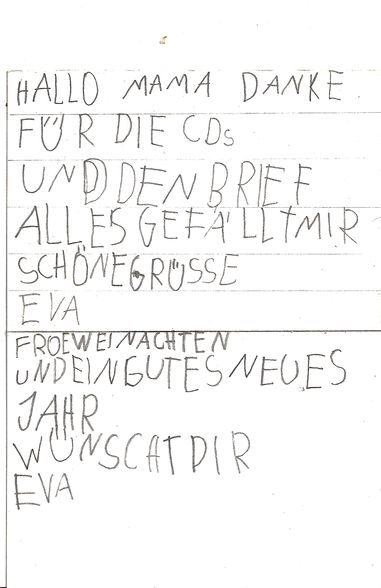 HALLO MAMA DANKE
FÜR DIE CDs
UND DEN BRIEF
ALLES GEFÄLLT MIR
SCHÖNE GRÜSSE
EVA
FROEWEINACHTEN
UND EIN GUTES NEUES
JAHR
WÜNSCHT DIR
EVA